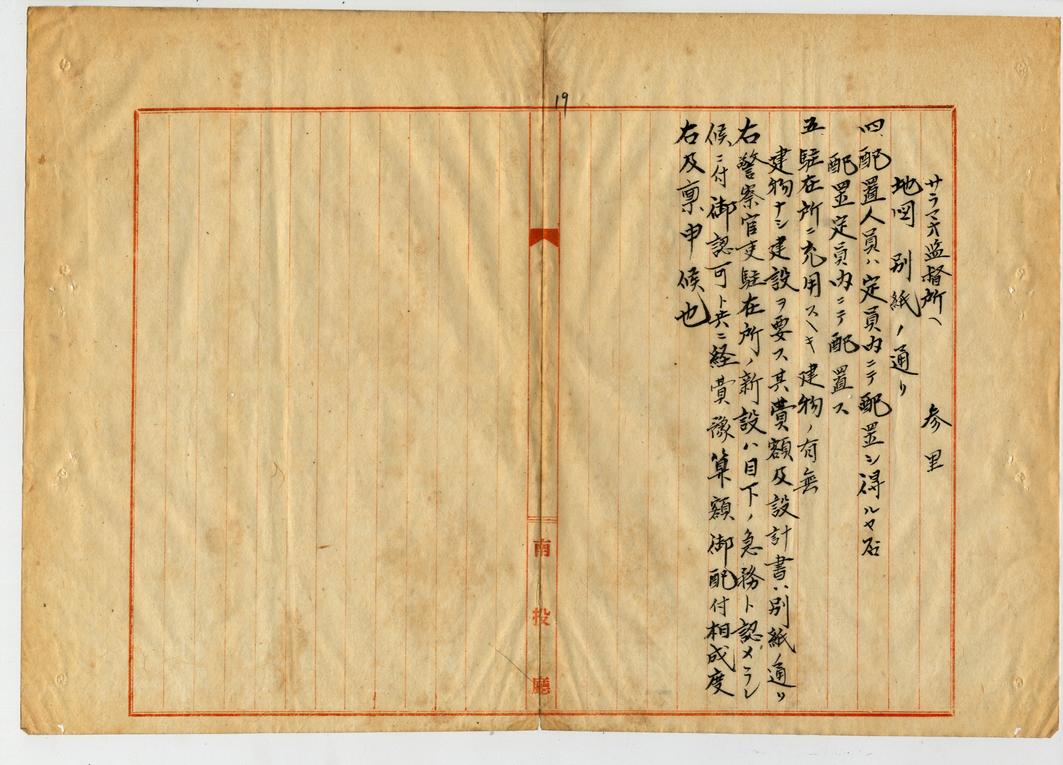 19
サラマオ監督所ヘ 参里
地図 別紙ノ通リ
四、配置人員ハ定員内ニテ配置シ得ルヤ否
配置定員内ニテ配置ス
五、駐在所ニ充用スヘキ建物ノ有無
建物ナシ建設ヲ要ス其費額及設計書ハ別紙ノ通リ
右警察官吏駐在所ノ新設ハ目下ノ急務ト認メラレ
候ニ付御認可ト共ニ経費豫算額御配付相成度
右及稟申候也
南投廳